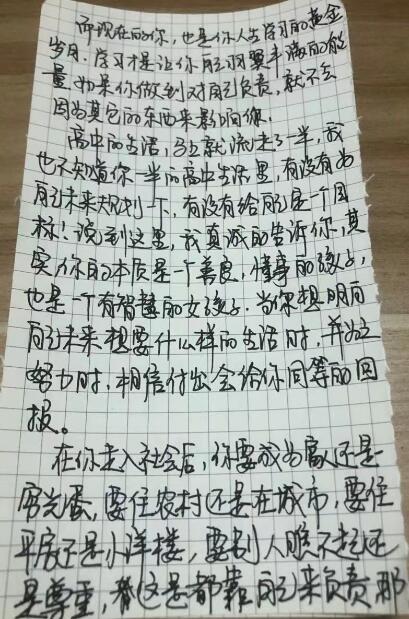 而现在的你，也是你人生学习的黄金
岁月。学习才是让你自己羽翼丰满的能
量。如果你做到对自己负责，就不会
因为其它的东西来影响你。
高中的生活，马上就流走了一半，我
也不知道你一半的高中生活里，有没有为
自己未来规划一下，有没有给自己定一个目
标！说到这里，我真诚的告诉你，其
实你的本质是一个善良，懂事的孩子，
也是一个有智慧的女孩子。当你想明白
自己未来想要什么样的生活时，并为之
努力时，相信付出会给你同等的回
报。
在你走入社会后，你要成为富人还是
穷光蛋，要住农村还是在城市，要住
平房还是小洋楼，要别人瞧不起还
是尊重，这是都靠自己来负责，那